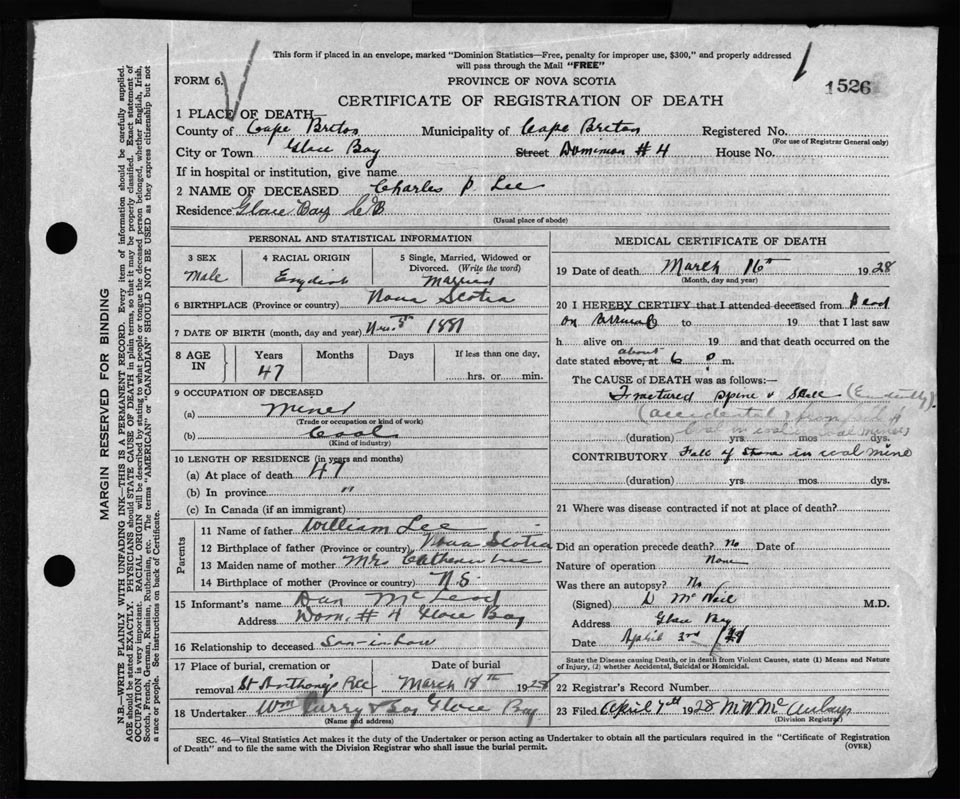 This form if placed in an envelope, marked "Dominion Statistics—Free, penalty for improper use, $300," and properly addressed
will pass through the Mail "FREE"
FORM 6.
PROVINCE OF NOVA SCOTIA
1526
CERTIFICATE OF REGISTRATION OF DEATH
1 PLACE OF DEATH—
County of Cape Breton Municipality of Cape Breton Registered No.
(For use of Registrar General only)
City or Town Glace Bay Street Dominion # 4 House No.
If in hospital or institution, give name
2 NAME OF DECEASED Charles P. Lee
Residence Glace Bay C B
(Usual place of abode)
PERSONAL AND STATISTICAL INFORMATION
3 SEX 4 RACIAL ORIGIN 5 Single, Married, Widowed or
Divorced. (Write the word)
Male English Married
6 BIRTHPLACE (Province or country) Nova Scotia
7 DATE OF BIRTH (month, day and year) 8th 1881
8 AGE IN Years Months Days If less than one day,
47 hrs. or min.
9 OCCUPATION OF DECEASED
(a) Miner
(Trade or occupation or kind of work)
(b) Coal
(Kind of industry)
10 LENGTH OF RESIDENCE (in years and months)
(a) At place of death 47
(b) In province "
(c) In Canada (if an immigrant)
Parents
11 Name of father William Lee
12 Birthplace of father (Province or country) Nova Scotia
13 Maiden name of mother Mrs Catherine Lee
14 Birthplace of mother (Province or country) N.S.
15 Informant's name Dan McLeod
Address Dom. # 4 Glace Bay
16 Relationship to deceased Son-in-law
17 Place of burial, cremation or Date of burial
removal St Anthony's March 18th 1928
18 Undertaker Wm Curry & Son Glace Bay
(Name and address)
MEDICAL CERTIFICATE OF DEATH
19 Date of death March 16th 1928
(Month, day and year)
20 I HEREBY CERTIFY that I attended deceased from Dead
on Arrival to 19 that I last saw
h alive on 19 and that death occurred on the
date stated above, at about 6 p m.
The CAUSE of DEATH was as follows:—
Fractured Spine & Skull (Evidently)
(accidental) from fall of
coal in coal mines)
(duration) yrs. mos dys.
CONTRIBUTORY Fall of stone in coal mine
(duration) yrs. mos. dys.
21 Where was disease contracted if not at place of death?
Did an operation precede death? No Date of
Nature of operation None
Was there an autopsy? No
(Signed) D McNeil M.D.
Address Glace Bay
Date April 3rd /28
State the Disease causing Death, or in death from Violent Causes, state (1) Means and Nature
of Injury, (2) whether Accidental, Suicidal or Homicidal.
22 Registrar's Record Number
23 Filed April 7th 1928 M W McAulay
(Division Registrar)
SEC. 46—Vital Statistics Act makes it the duty of the Undertaker or person acting as Undertaker to obtain all the particulars required in the "Certificate of Registration
of Death" and to file the same with the Division Registrar who shall issue the burial permit.
(OVER)
MARGIN RESERVED FOR BINDING
N.B.—WRITE PLAINLY WITH UNFADING INK—THIS IS A PERMANENT RECORD. Every item of information should be carefully supplied.
AGE should be stated EXACTLY. PHYSICIANS should STATE CAUSE OF DEATH in plain terms, so that it may be properly classified. Exact statement of
OCCUPATION is very important. RACIAL ORIGIN will be described by stating to what people or tongue the deceased person belonged, whether English, Irish,
Scotch, French, German, Russian, Ruthenian, etc. The terms "AMERICAN" or "CANADIAN" SHOULD NOT BE USED as they express citizenship but not
a race or people. See instructions on back of Certificate.